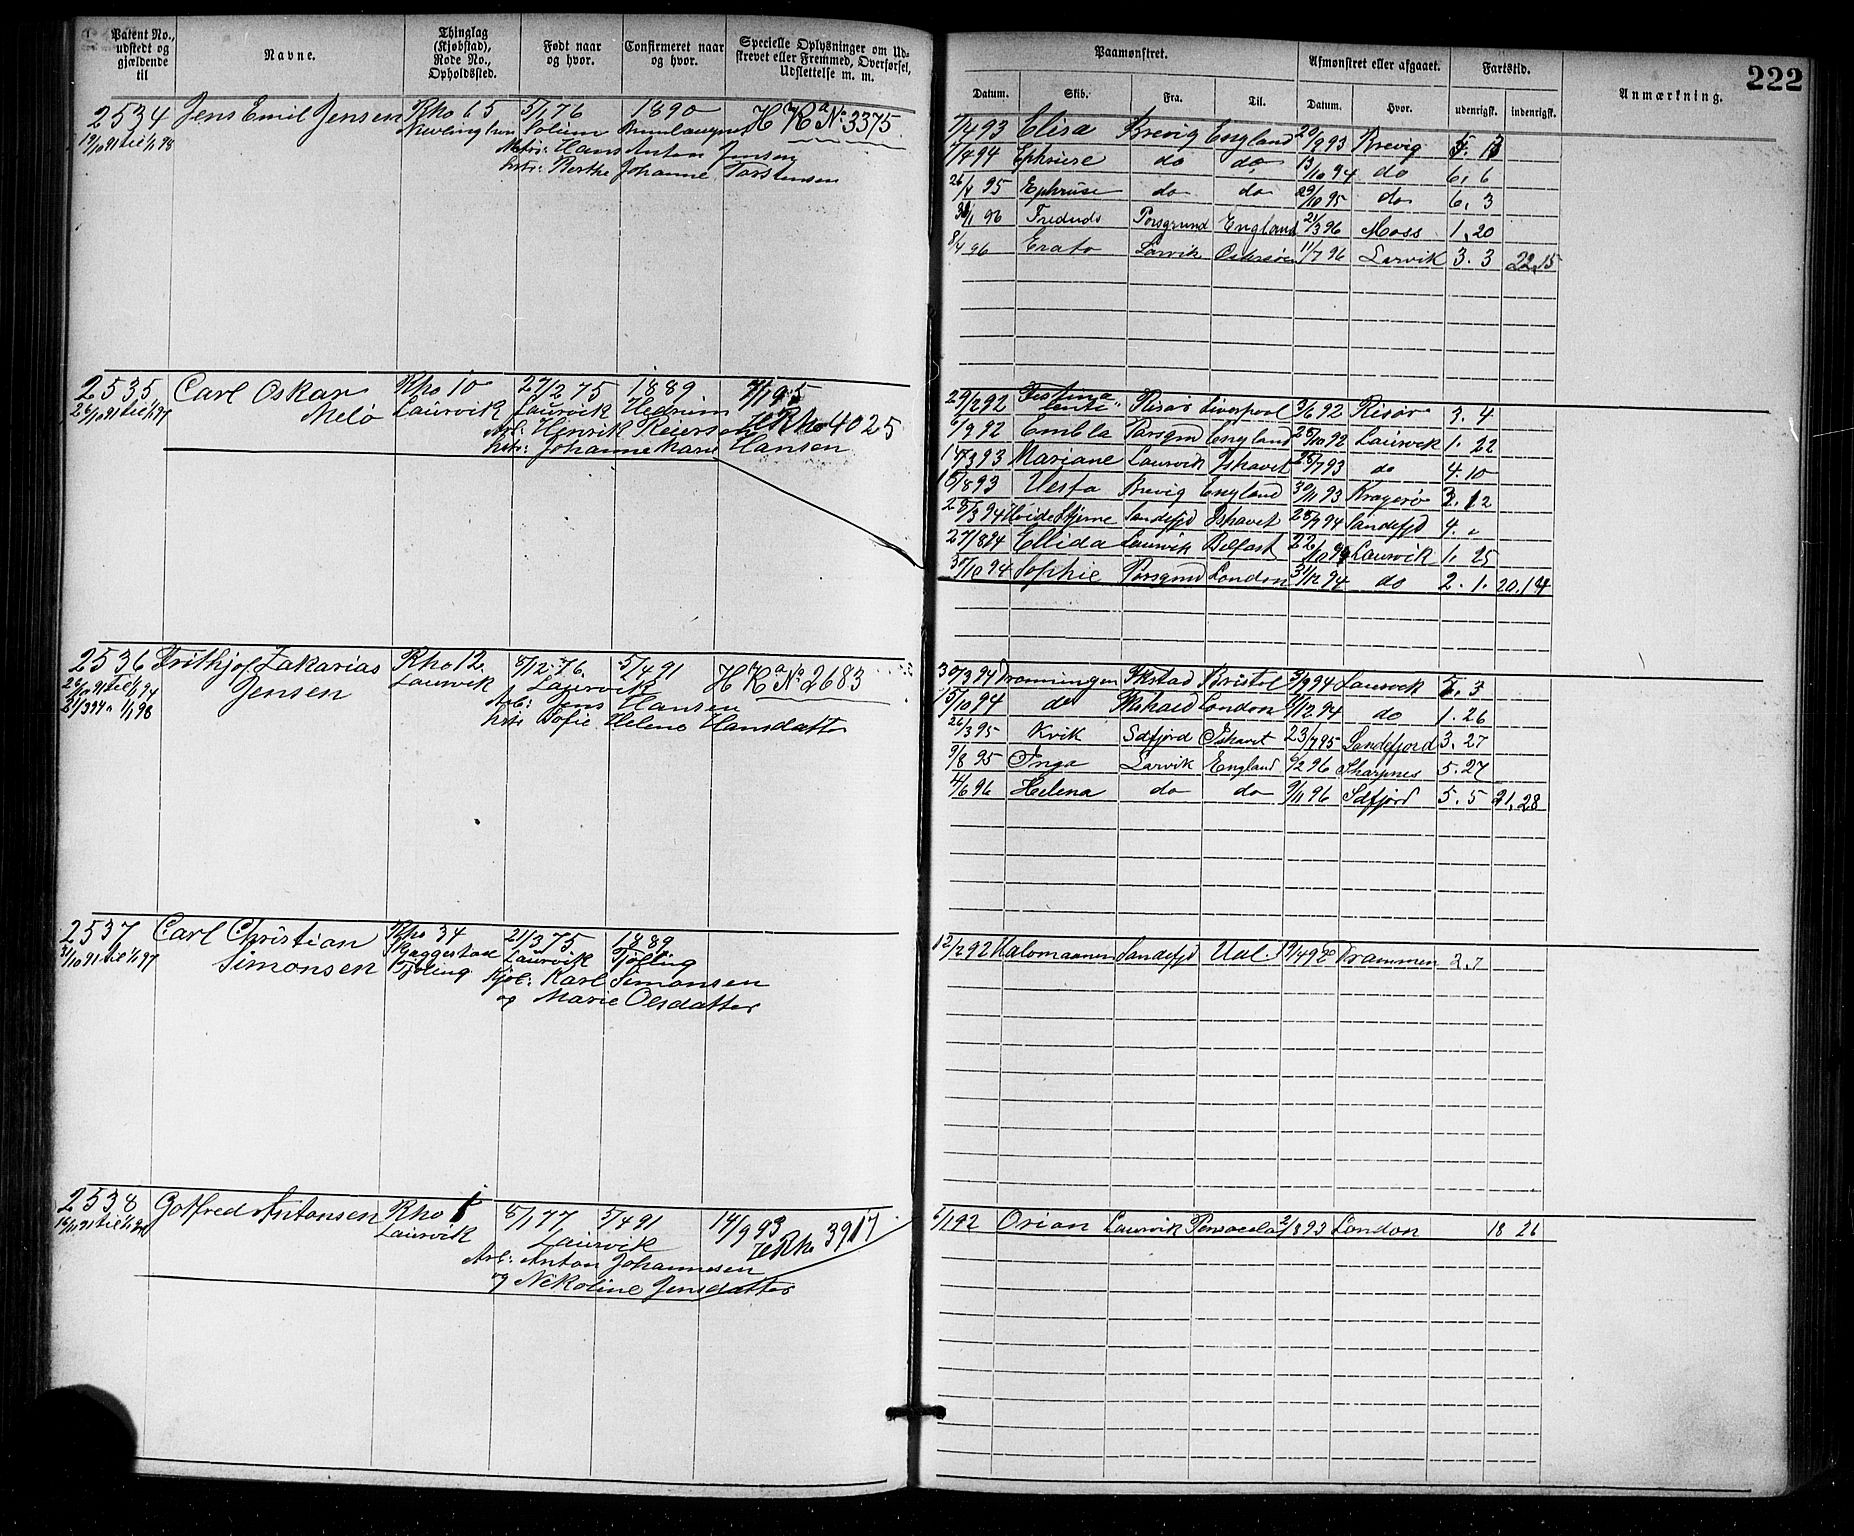 Patent No., udstedt og gjældende til
Navne.
Thinglag (Kjøbstad), Rode No., Opholdssted.
Født naar og hvor.
Confirmeret naar og hvor.
Specielle Oplysninger om Udskrevet eller Fremmed, Overførsel, Udslettelse m. m.
Paamønstret.
Afmønstret eller afgaaet.
Fartstid.
Anmærkning.
222
Datum.
Skib.
Fra.
Til.
Datum.
Hvor.
udenrigsk.
indenrigsk.
2534 Jens Emil Jensen Rho 65 5/1 76 1890 H Ka No 3375
19/10 91 til 1/1 98 Solum
Hans Anton Jensen
Berthe Johanne Torstensen
7/4 93 Elisa Brevig England 20/9 93 Brevig
7/4 94 Ephrüse do do 13/10 94 do 6, 6
26/4 95 Ephrüse do do 29/10 95 do 6, 3
Porsgrund England 21/3 96 Moss 1, 20
8/4 96 Erato Larvik 11/7 96 Larvik 3. 3 22.15
2535 Carl Oskar Rho 10 27/2 75 1889
26/10 91 til 1/1 97 Melø Laurvik Laurvik Hedrum HRho 4025
Arb: Henrik Reiersen
Johanne Marie Hansen
29/2 92 Festina lente Risør Liverpool 3/6 92 Risør 3. 4
6/9 92 Embla Porsgrnd England 28/10 92 Laurvik 1. 22
Mariane Laurvik Ishavet 28/7 93 do 4. 10
15/8 93 Vesta Brevig England 30/11 93 Kragerø
28/3 94 Sandefjd Ishavet 28/7 94 Sandefjd 4. "
27/8 94 Ellida Laurvik Belfast 22/10 94 Laurvik 1. 25
30/10 94 Sophie Porsgrnd London 31/12 94 do 2. 1. 20.14
2536 Frithjof Zakarias Rho 12 5/12 76 5/4 91 H Ka No 2683
26/10 91 til 1/1 94 Jensen Laurvik Laurvik
21/3 94 " 1/1 98 Arb: Jens Hansen
Sofie Helene Hansdatter
30/3 94 Dronningen Fkstad Bristol 3/9 94 Laurvik
15/10 94 do London do 1. 26
26/3 95 Kvik Sdfjord Ishavet 23/7 95 Sandefjord 3. 27
9/8 95 Inga Larvik England 6/2 96 Sharpnes 5. 27
4/6 96 Helena do do 9/11 96 Sdfjord 5. 5 21,28
2537 Carl Christian Rho 34 21/3 75 1889
31/10 91 til 1/1 97 Simonsen Tjøling Laurvik Tjølling
Karl Simonsen
og Marie Olsdatter
12/2 92 Sandefjd 19/4 92 Drammen 2. 7
2538 Gotfred Antonsen Rho 8/1 77 5/4 91 14/9 93 HRho 3917
Laurvik Laurvik
Arb: Anton Johannesen
og Nekoline Jensdatter
5/1 92 Orion Laurvik 2/8 93 London 18 26